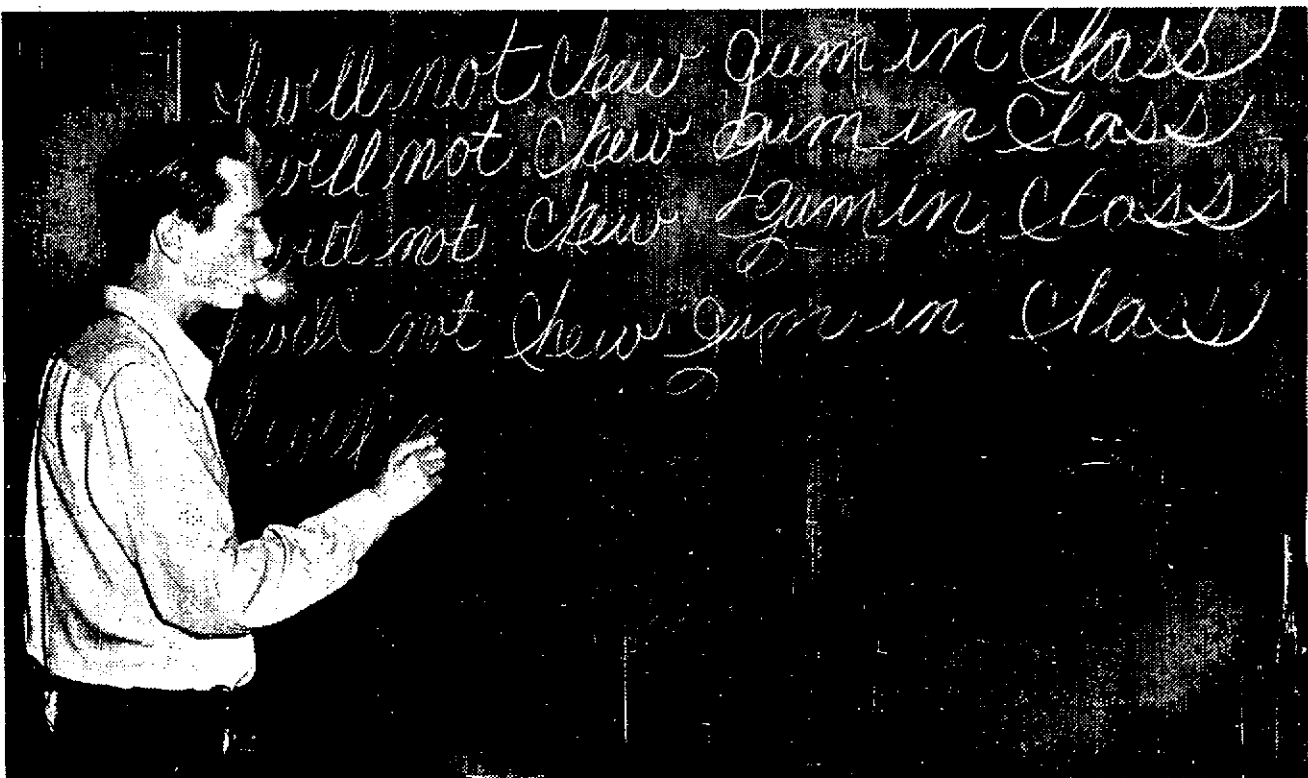 I will not Chew gum in Class
will not Chew gum in Class
will not Chew gum in Class
I will not Chew gum in Class
I will